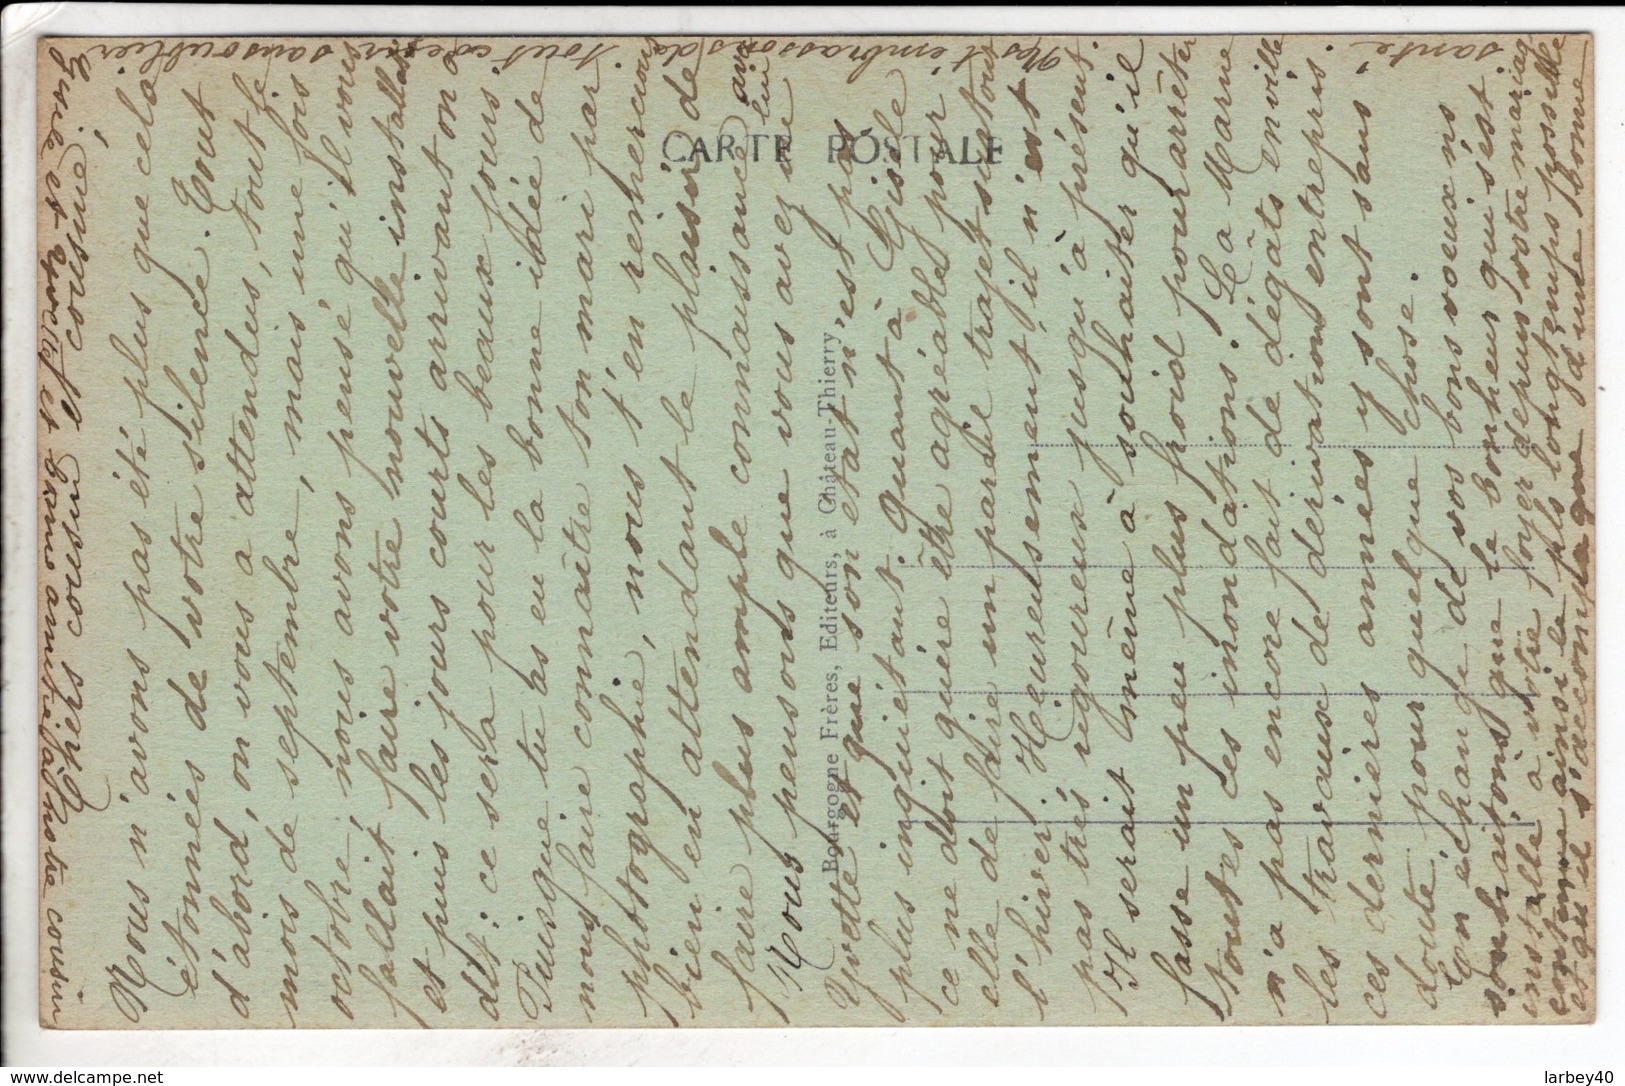 Nous n'avons pas été plus que cela
étonnées de votre silence. Tout
d'abord, on vous a attendus, tout le
mois de septembre, mais une fois
octobre, nous avons pensé qu'il vous
fallait faire votre nouvelle installat
et puis les jours courts arrivant on a
dit: ce sera pour les beaux jours.
Puisque tu as eu la bonne idée de
nous faire connaître ton mari par
photographie, nous t'en remercions
bien en attendant le plaisir de
faire plus ample connaissance avec lui
Nous pensons que vous avez vu
Yvette et que son état n'est pas
plus inquiétant. Quant à Gisèle
ce ne doit guère être agréable pour
elle de faire un pareil trajet surtout
l'hiver. Heureusement, il n'est
pas très rigoureux jusqu'à présent.
Il serait même à souhaiter qu'il
fasse un peu plus froid pour arrêter
toutes ces inondations. La Marne
n'a pas encore fait de dégâts en ville
les travaux de dérivation entrepris
ces dernières années y sont sans
doute pour quelque chose.
En échange de vos bons vœux ns
souhaitons que le bonheur qui s'est
installé à votre foyer depuis votre mariag
continue ainsi le plus longtemps possible
et qu'il s'accompagne d'une bonne
santé.
Ns t'embrassons de
tout cœur sans oublier
Gros baisers
cousine
et bonne amitié à notre cousin
CARTE POSTALE
Bourgogne Frères, Editeurs, à Château-Thierry
www.delcampe.net
larbey40